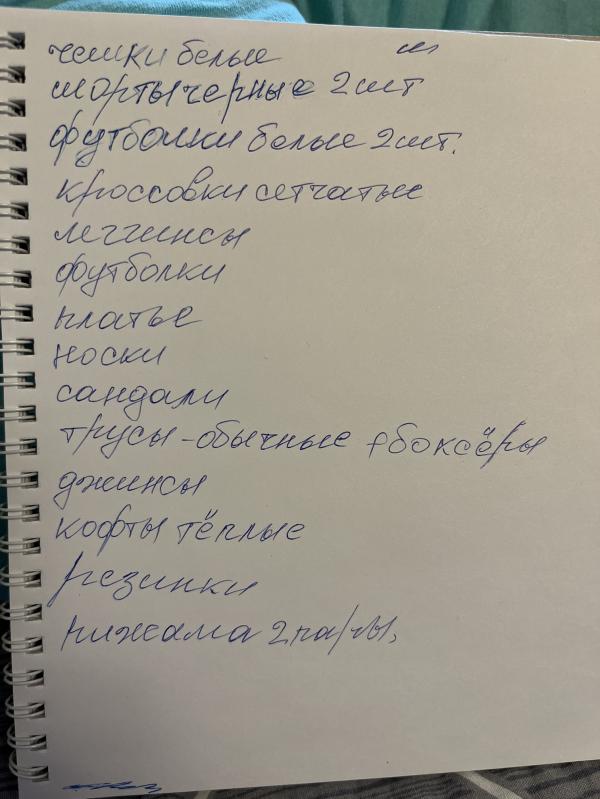 чешки белые
шорты черные 2шт
футболки белые 2шт.
кроссовки сетчатые
леггинсы
футболки
платье
носки
сандали
трусы - обычные + боксёры
джинсы
кофты тёплые
резинки
пижама 2 пары,